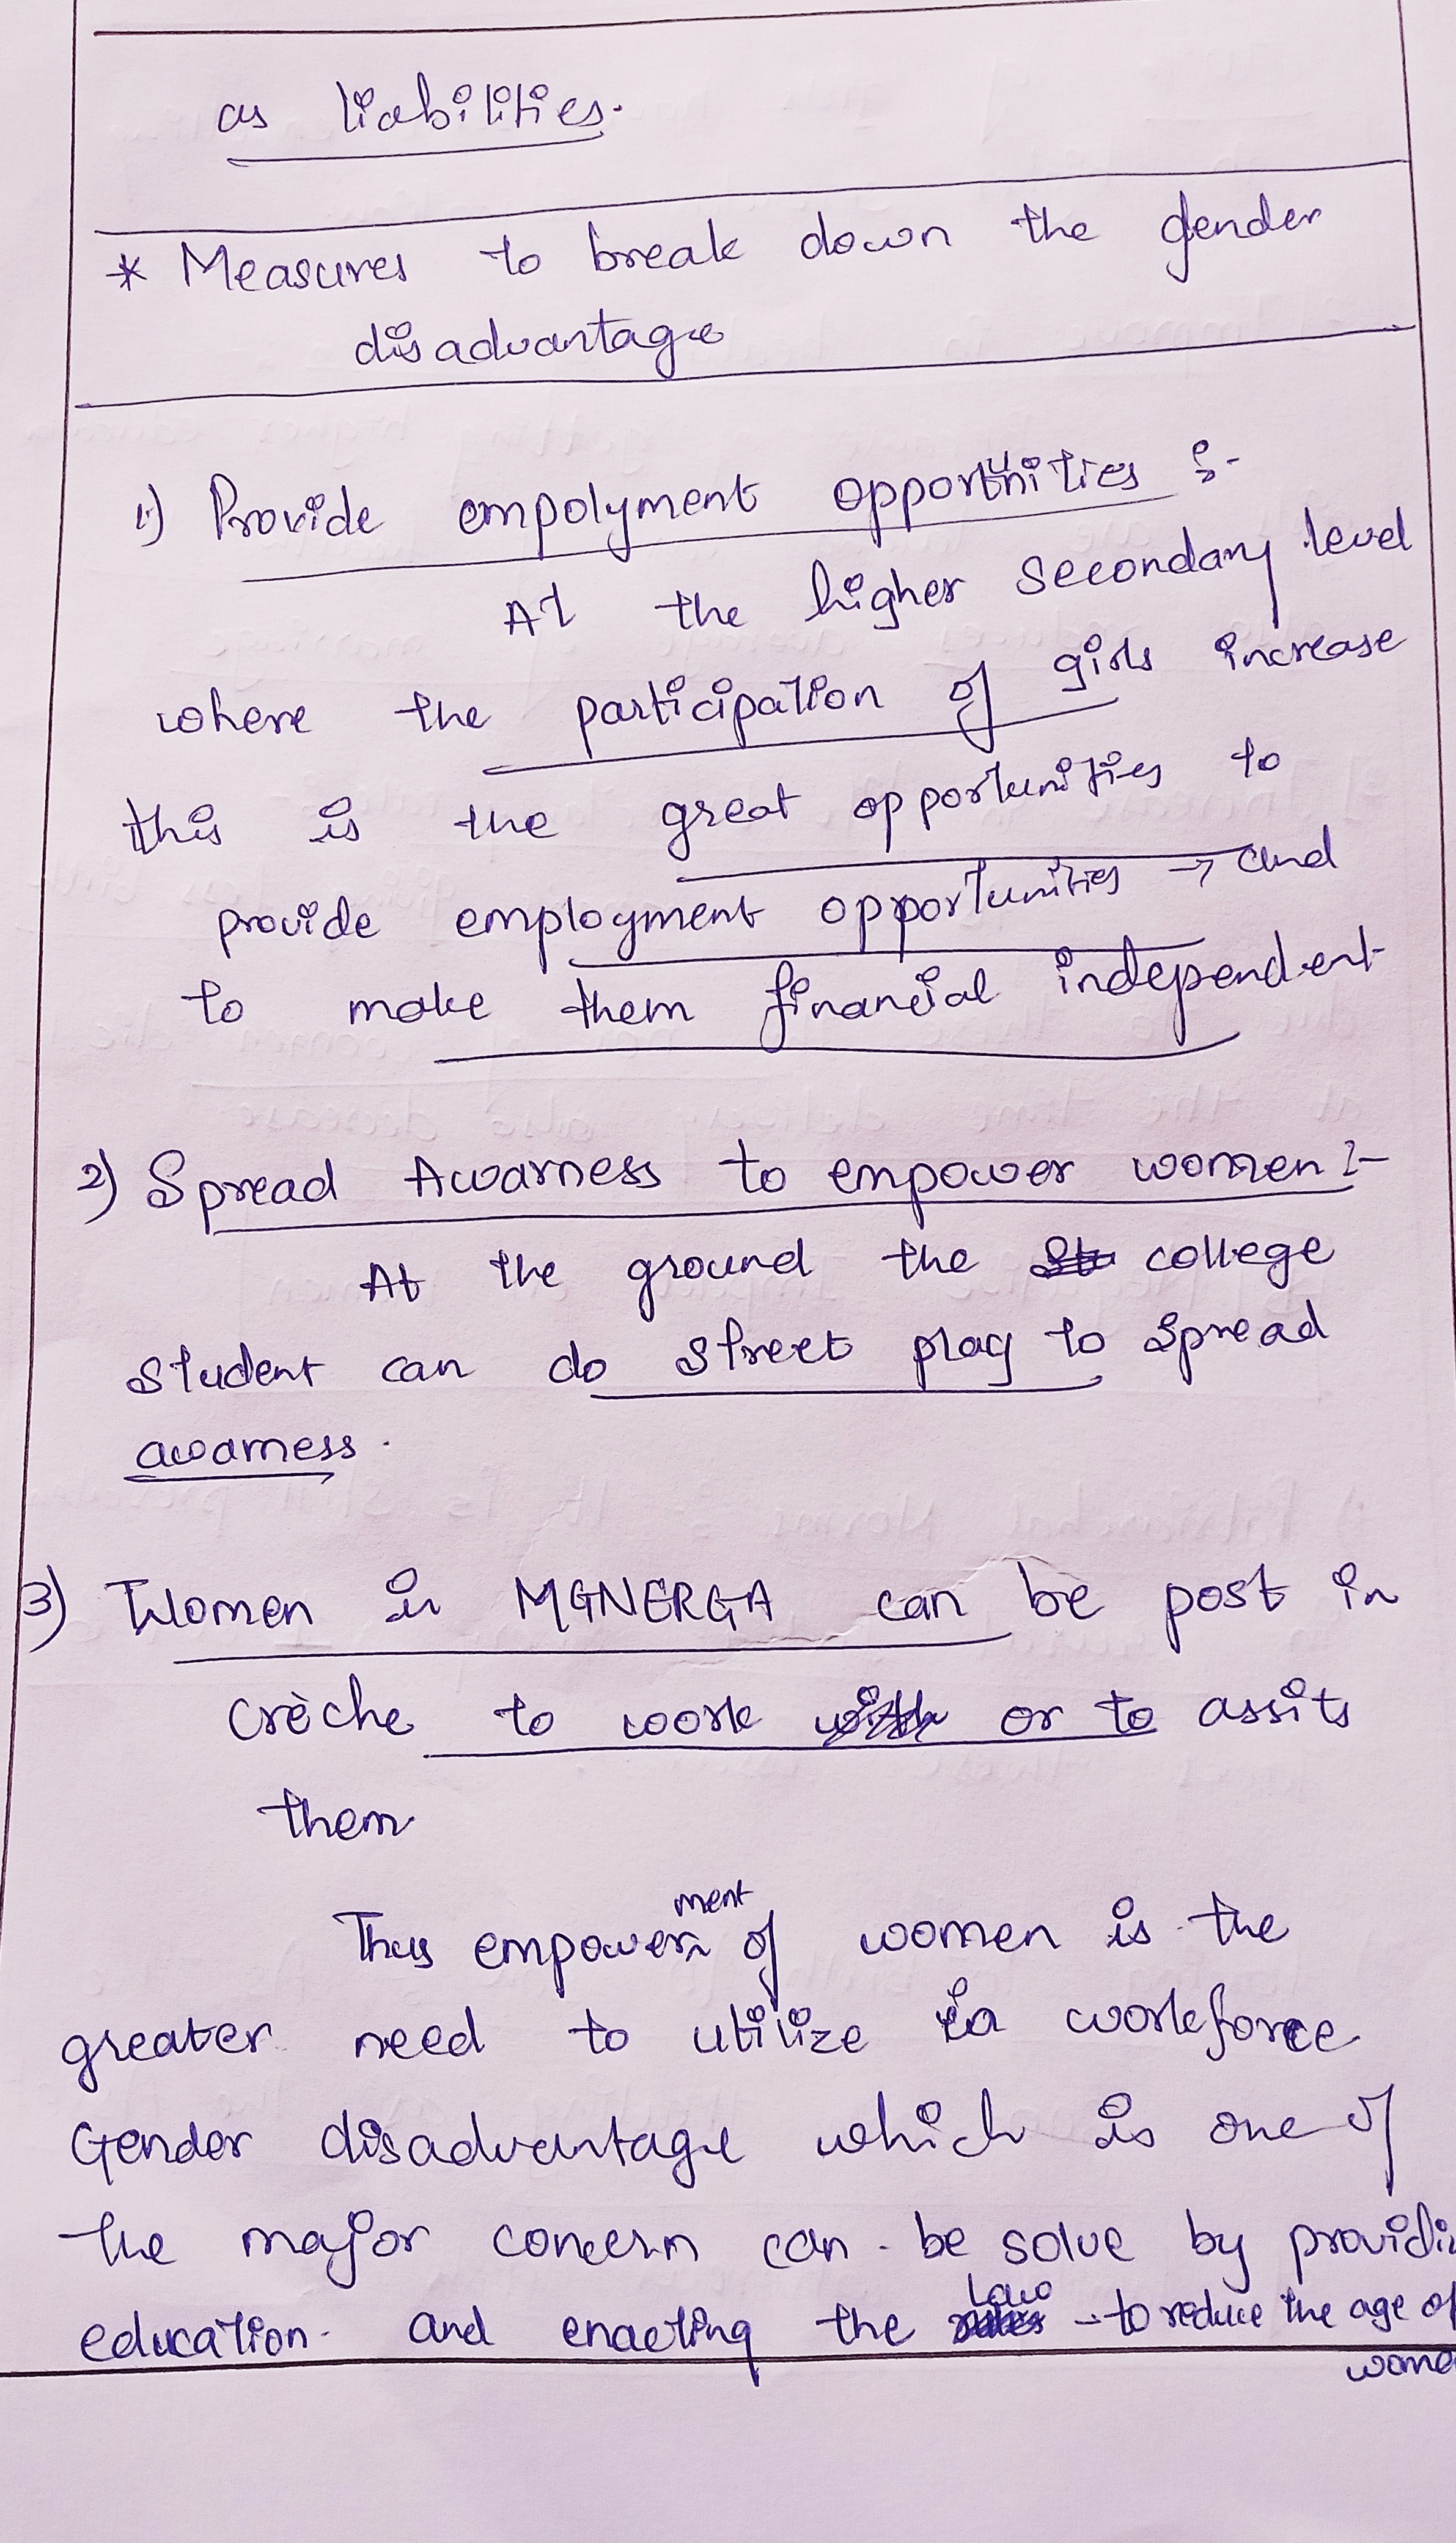 as liabilities.
* Measures to break down the gender
disadvantage
1) Provide empolyment opportunities :-
At the higher secondary level
where the participation of girls increase
this is the great opportunities to
provide employment opportunities → and
to make them financial independent
2) Spread Awarness to empower women :-
At the ground the college
student can do street play to spread
awarness.
3) Women in MGNERGA can be post in
crèche to work or to assits
them
Thus empowerment of women is the
greater need to utilize in workforce
Gender disadvantage which is one of
the major concern can be solve by providi
education. and enacting the Law to reduce the age of
wome